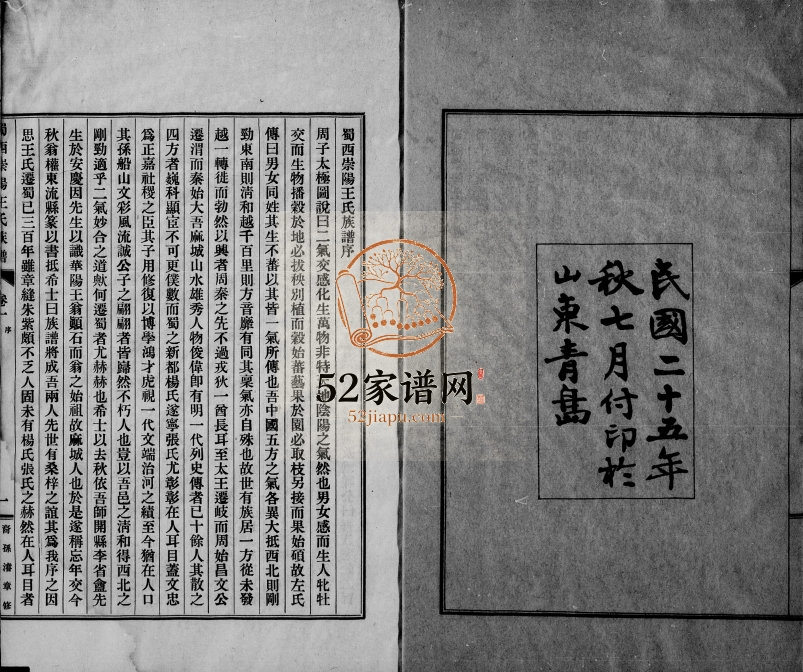 民國二十五年
秋七月付印於
山東青島
蜀西崇陽王氏族譜序
周子太極圖說曰二氣交感化生萬物非特天地陰陽之氣然也男女感而生人牝牡
交而生物播穀於地必拔秧別植而穀始蕃藝果於園必取枝另接而果始碩故左氏
傳曰男女同姓其生不蕃以其皆一氣所傳也吾中國五方之氣各異大抵西北則剛
勁東南則清和越千百里則方音靡有同其稟氣亦自殊也故世有族居一方從未發
越一轉徙而勃然以興者周泰之先不過戎狄一酋長耳至太王遷岐而周始昌文公
遷渭而秦始大吾麻城山水雄秀人物俊偉即有明一代列史傳者已十餘人其散之
四方者巍科顯宦不可更僕數而蜀之新都楊氏遂寧張氏尤彰彰在人耳目蓋文忠
為正嘉社稷之臣其子用修復以博學鴻才虎視一代文端治河之績至今猶在人口
其孫船山文彩風流誠公子之翩翩者皆歸然不朽人也豈以吾邑之清和得西北之
剛勁適乎二氣妙合之道歟何遷蜀者尤赫赫也希士以去秋依吾師開縣李省盦先
生於安慶因先生以識華陽王翁顥石而翁之始祖故麻城人也於是遂稱忘年交今
秋翁權東流縣篆以書抵希士曰族譜將成吾兩人先世有桑梓之誼其為我序之因
思王氏遷蜀已三百年雖章縫朱紫頗不乏人固未有楊氏張氏之赫然在人耳目者
蜀西崇陽王氏族譜 卷一 序
一
裔孫濬章修
52家谱网
52jiapu.com